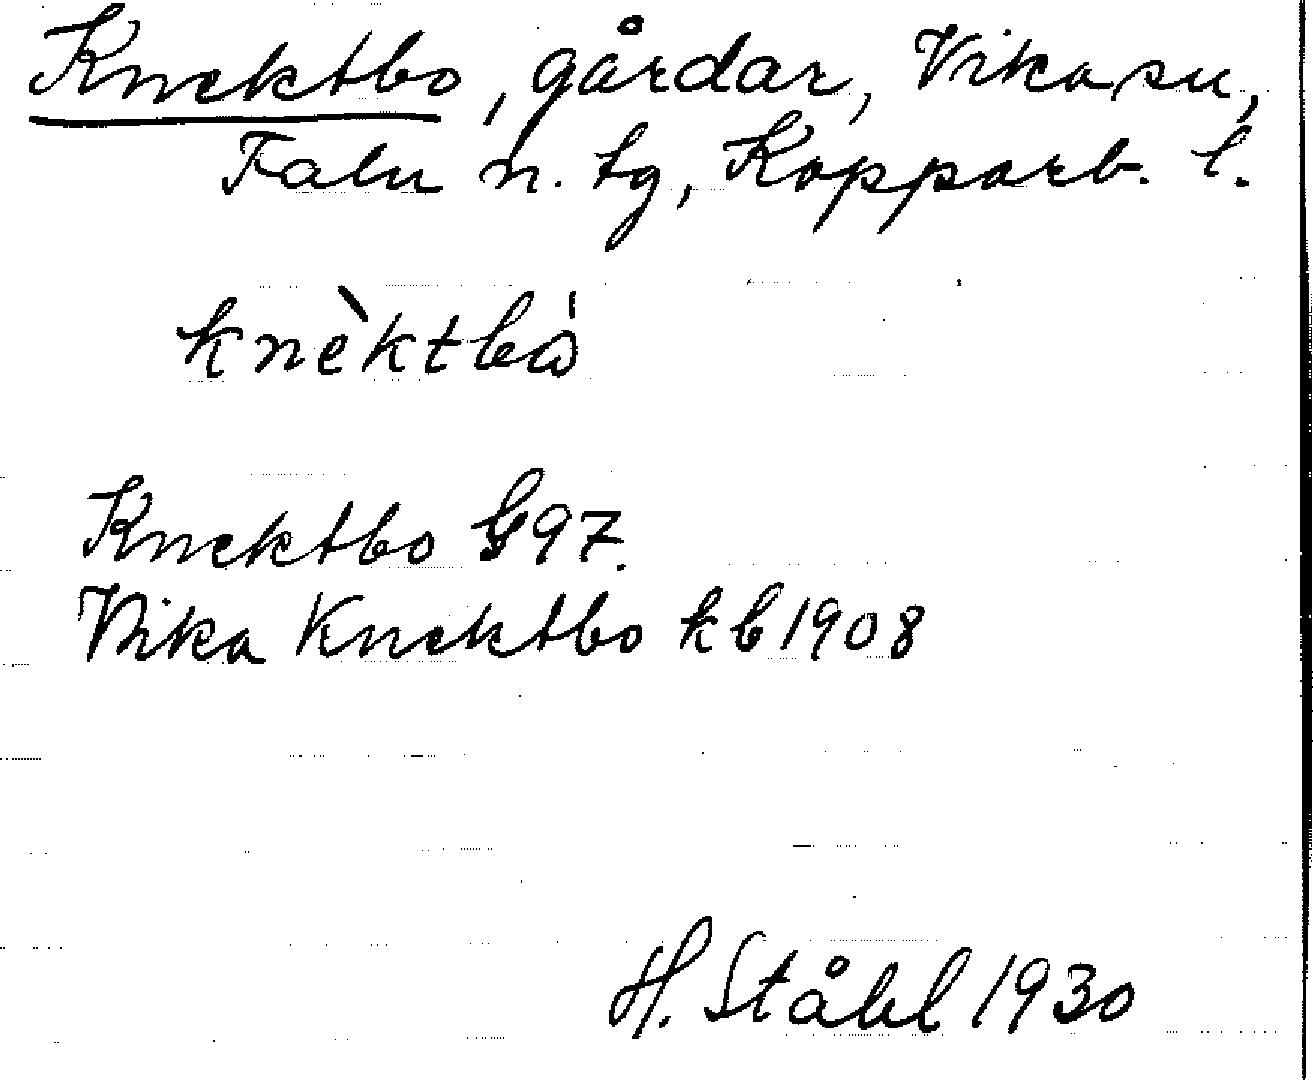 Knektbo, gårdar, Vika sn,
Falu n. tg, Kopparb. l.
knèktbɷ́
Knektbo G97.
Vika Knektbo kb 1908
H. Ståhl 1930